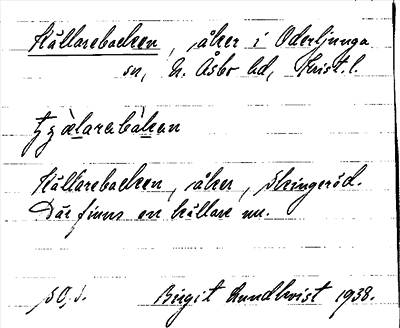 Källarebacken, åker i Oderljunga
sn, N. Åsbo hd, Krist. l.
Källarebacken, åker, Skingeröd.
Där finns en källare nu.
Birgit Rundkvist 1938.